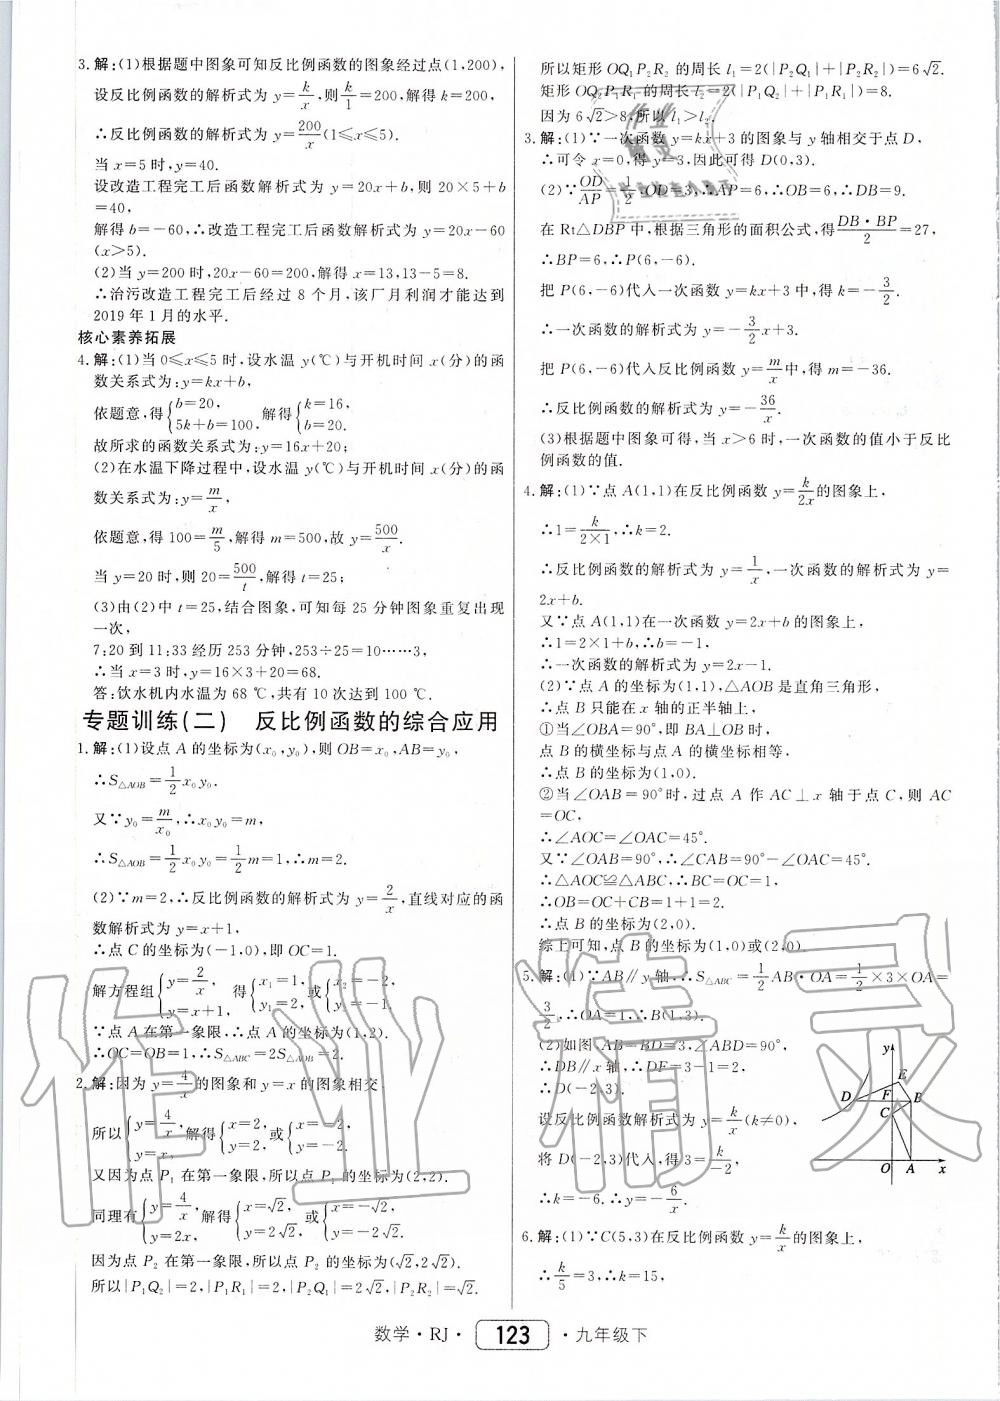 3. 解:(1)根据题中图象可知反比例函数的图象经过点(1,200),
设反比例函数的解析式为 y=k/x,则k/1=200,解得 k=200,
∴反比例函数的解析式为 y=200/x(1≤x≤5).
当 x=5 时,y=40.
设改造工程完工后函数解析式为 y=20x+b,则 20×5+b
=40,
解得 b=-60,∴改造工程完工后函数解析式为 y=20x-60
(x>5).
(2)当 y=200 时,20x-60=200,解得 x=13,13-5=8.
∴治污改造工程完工后经过 8 个月,该厂月利润才能达到
2019 年 1 月的水平.
核心素养拓展
4. 解:(1)当 0≤x≤5 时,设水温 y(℃)与开机时间 x(分)的函
数关系式为:y=kx+b,
依题意,得{b=20, 5k+b=100, 解得{k=16, b=20.
故所求的函数关系式为:y=16x+20;
(2)在水温下降过程中,设水温 y(℃)与开机时间 x(分)的函
数关系式为:y=m/x,
依题意,得 100=m/5,解得 m=500,故 y=500/x.
当 y=20 时,则 20=500/t,解得 t=25;
(3)由(2)中 t=25,结合图象,可知每 25 分钟图象重复出现
一次,
7:20 到 11:33 经历 253 分钟,253÷25=10……3,
∴当 x=3 时,y=16×3+20=68.
答:饮水机内水温为 68 ℃,共有 10 次达到 100 ℃.
专题训练(二) 反比例函数的综合应用
1. 解:(1)设点 A 的坐标为(x₀,y₀),则 OB=x₀,AB=y₀,
∴S△AOB=1/2x₀y₀.
又∵y₀=m/x₀,∴x₀y₀=m,
∴S△AOB=1/2x₀y₀=1/2m=1,∴m=2.
(2)∵m=2,∴反比例函数的解析式为 y=2/x,直线对应的函
数解析式为 y=x+1,
∴点 C 的坐标为(-1,0),即 OC=1.
解方程组{y=2/x, y=x+1, 得{x₁=1, y₁=2, 或{x₂=-2, y₂=-1.
∵点 A 在第一象限,∴点 A 的坐标为(1,2).
∴OC=OB=1,∴S△ABC=2S△AOB=2.
2. 解:因为 y=4/x的图象和 y=x 的图象相交,
所以{y=4/x, y=x, 解得{x=2, y=2, 或{x=-2, y=-2.
又因为点 P₁ 在第一象限,所以点 P₁ 的坐标为(2,2).
同理有{y=4/x, y=2x, 解得{x=√2, y=2√2, 或{x=-√2, y=-2√2.
因为点 P₂ 在第一象限,所以点 P₂ 的坐标为(√2,2√2).
所以|P₁Q₁|=2,|P₁R₁|=2,|P₂Q₁|=2√2,|P₂R₂|=√2.
所以矩形 OQ₁P₂R₂ 的周长 l₁=2(|P₂Q₁|+|P₂R₂|)=6√2.
矩形 OQ₂P₁R₁ 的周长 l₂=2(|P₁Q₂|+|P₁R₁|)=8.
因为 6√2>8,所以 l₁>l₂.
3. 解:(1)∵一次函数 y=kx+3 的图象与 y 轴相交于点 D,
∴可令 x=0,得 y=3,因此可得 D(0,3).
(2)∵OD/AP=1/2,OD=3,∴AP=6,∴OB=6,∴DB=9.
在 Rt△DBP 中,根据三角形的面积公式,得DB·BP/2=27,
∴BP=6,∴P(6,-6).
把 P(6,-6)代入一次函数 y=kx+3 中,得 k=-3/2.
∴一次函数的解析式为 y=-3/2x+3.
把 P(6,-6)代入反比例函数 y=m/x中,得 m=-36.
∴反比例函数的解析式为 y=-36/x.
(3)根据题中图象可得,当 x>6 时,一次函数的值小于反比
例函数的值.
4. 解:(1)∵点 A(1,1)在反比例函数 y=k/2x的图象上,
∴1=k/2×1,∴k=2.
∴反比例函数的解析式为 y=1/x,一次函数的解析式为 y=
2x+b.
又∵点 A(1,1)在一次函数 y=2x+b 的图象上,
∴1=2×1+b,∴b=-1,
∴一次函数的解析式为 y=2x-1.
(2)∵点 A 的坐标为(1,1),△AOB 是直角三角形,
∴点 B 只能在 x 轴的正半轴上,
①当∠OBA=90°,即 BA⊥OB 时,
点 B 的横坐标与点 A 的横坐标相等,
∴点 B 的坐标为(1,0).
②当∠OAB=90°时,过点 A 作 AC⊥x 轴于点 C,则 AC
=OC,
∴∠AOC=∠OAC=45°.
又∵∠OAB=90°,∴∠CAB=90°-∠OAC=45°.
∴△AOC≌△ABC,∴BC=OC=1,
∴OB=OC+CB=1+1=2.
∴点 B 的坐标为(2,0).
综上可知,点 B 的坐标为(1,0)或(2,0).
5. 解:(1)∵AB∥y 轴,∴S△ABC=1/2AB·OA=1/2×3×OA=
3/2,∴OA=1,∴B(1,3).
(2)如图,AB=BD=3,∠ABD=90°,
∴DB∥x 轴,∴DF=3-1=2,
∴D(-2,3).
设反比例函数解析式为 y=k/x(k≠0),
将 D(-2,3)代入,得 3=k/-2,
∴k=-6,∴y=-6/x.
y
E
D F B
C
O A x
6. 解:(1)∵C(5,3)在反比例函数 y=k/x的图象上,
∴k/5=3,∴k=15,
数学·RJ· 123 ·九年级下
作业精灵